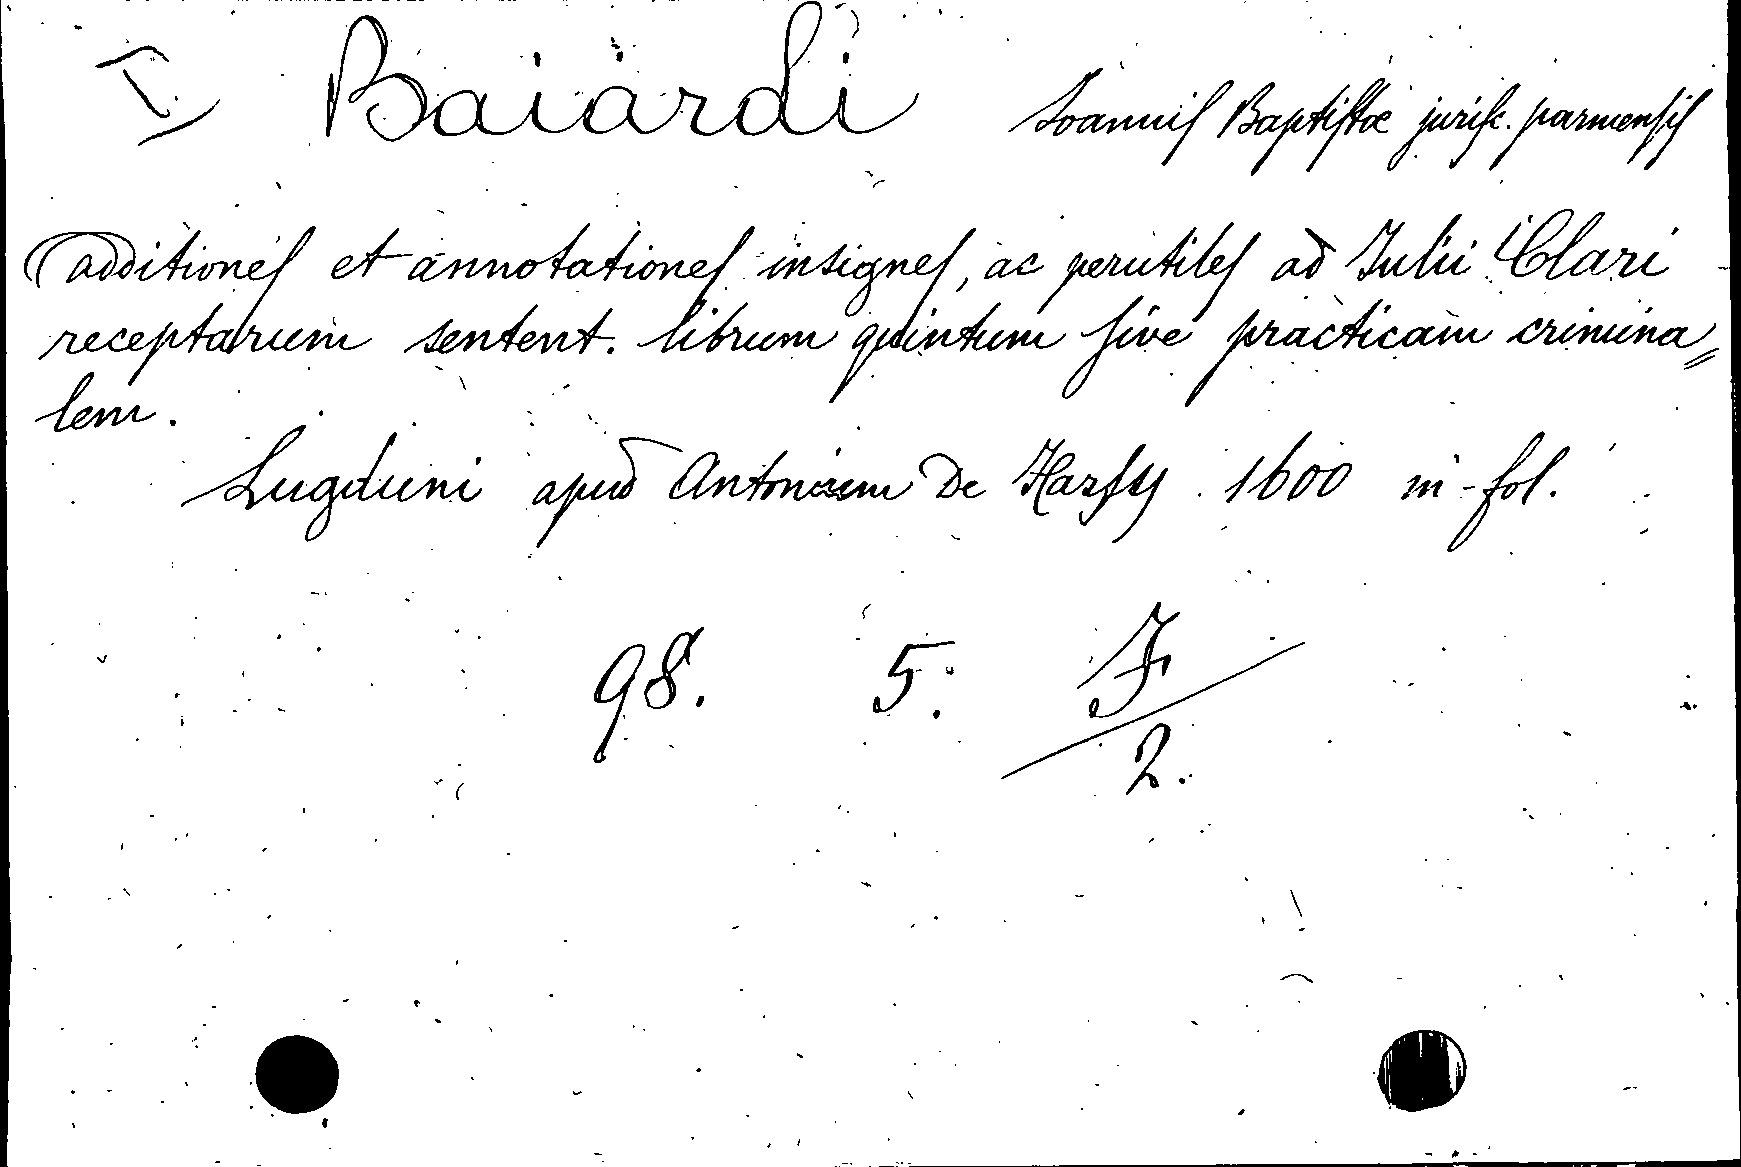 I Baiardi Ioannis Baptistæ jurisc. parmensis
additiones et annotationes insignes, ac perutiles ad Julii Clari
receptarum sentent. librum quintum sive practicam crimina„
lem.
Lugduni apud Antonium De Harsy 1600 in-fol.
98. 5. F
2.